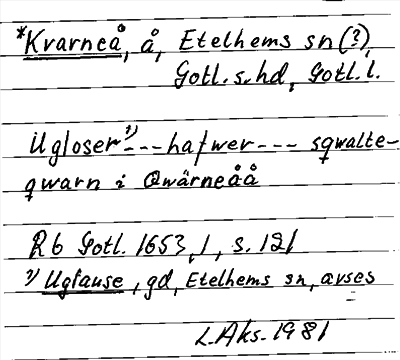 *Kvarneå, å, Etelhems sn (?),
Gotl. s. hd, Gotl. l.
Ugloser¹⁾--- hafwer --- sqwalte-
qwarn i Qwärneåå
Rb Gotl. 1653, 1, s. 121
¹⁾ Uglause, gd, Etelhems sn, avses
L. Aks. 1981